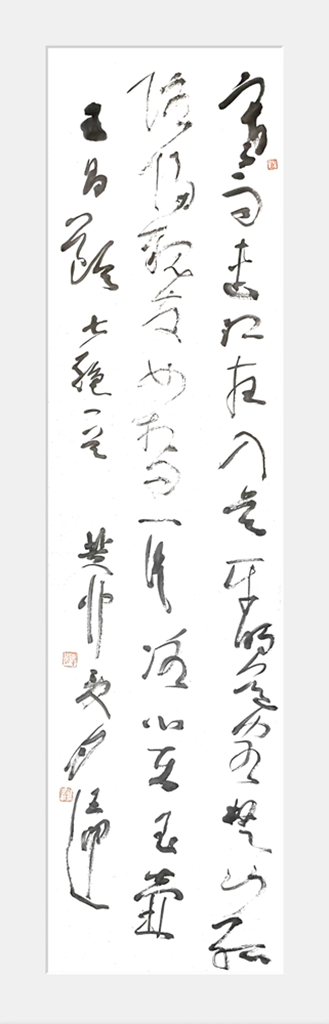 寒雨連江夜入吳平明送客楚山孤
洛陽親友如相問一片冰心在玉壺
王昌齡七絕一首